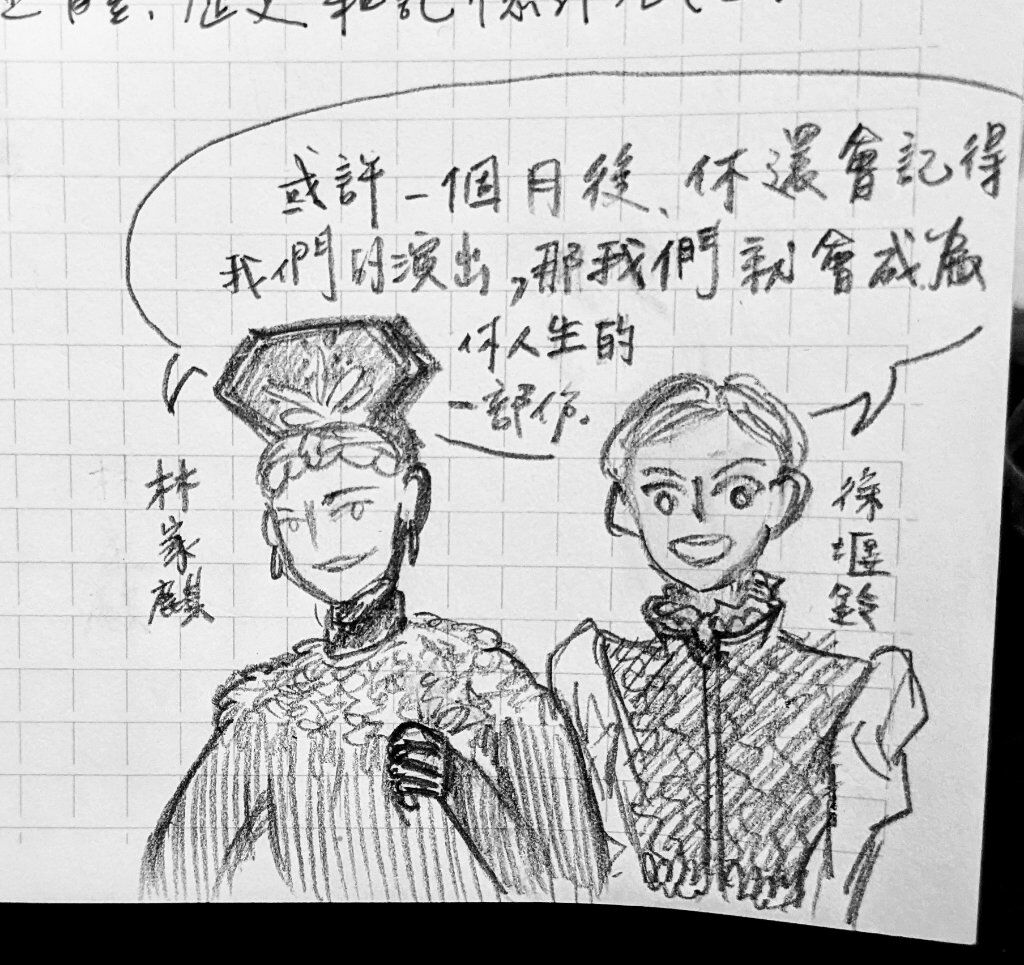 歷史和記憶
或許一個月後、你還會記得
我們的演出,那我們就會成為
你人生的
一部份。
林家麒
徐堰鈴